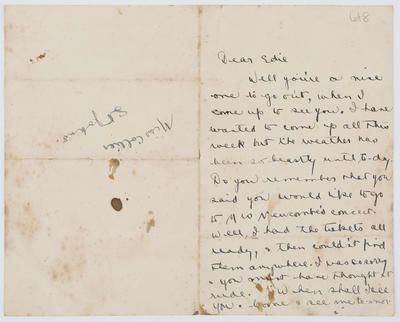 618
Dear Edie
Well you're a nice
one to go out, when I
come up to see you. I have
wanted to come up all this
week but the weather has
been so beastly until to-day.
Do you remember that you
said you would like to go
to Miss Newcombe's concert.
Well, I had the tickets all
ready, & then couldn't find
them anywhere. I was so sorry
& you must have thought it
rude. When shall I see
you. Come & see me to-mor-
Miss Collier
St Johns.